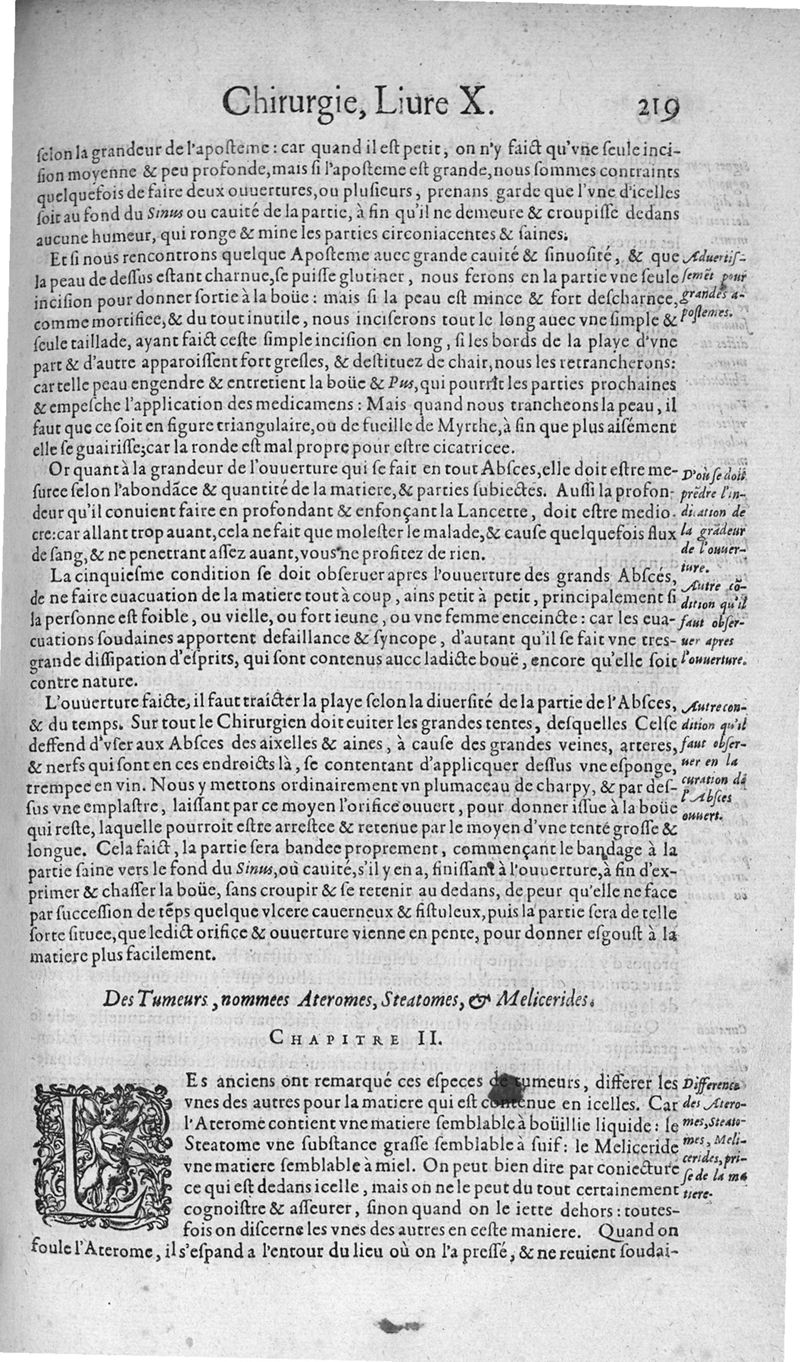 Chirurgie, Liure X. 219
ſelon la grandeur de l'apoſteme : car quand il eſt petit, on n'y faict qu'vne ſeule inci-
ſion moyenne & peu profonde, mais ſi l'apoſteme eſt grande, nous ſommes contraints
quelquefois de faire deux ouuertures, ou pluſieurs, prenans garde que l'vne d'icelles
ſoit au fond du Sinus ou cauité de la partie, à fin qu'il ne demeure & croupiſſe dedans
aucune humeur, qui ronge & mine les parties circoniacentes & ſaines.
Et ſi nous rencontrons quelque Apoſteme auec grande cauité & ſinuoſité, & que
la peau de deſſus eſtant charnue, ſe puiſſe glutiner, nous ferons en la partie vne ſeule
inciſion pour donner ſortie à la boüe : mais ſi la peau eſt mince & fort deſcharnee,
comme mortifiee, & du tout inutile, nous inciſerons tout le long auec vne ſimple &
ſeule taillade, ayant faict ceſte ſimple inciſion en long, ſi les bords de la playe d'vne
part & d'autre apparoiſſent fort greſles, & deſtituez de chair, nous les retrancherons:
car telle peau engendre & entretient la boüe & Pus, qui pourrit les parties prochaines
& empeſche l'application des medicamens : Mais quand nous trancheons la peau, il
faut que ce ſoit en figure triangulaire, ou de fueille de Myrche, à fin que plus aiſément
elle ſe guairiſſe; car la ronde eſt mal propre pour eſtre cicatricee.
Aduertiſ-
ſemẽt pour
grandes a-
poſtemes.
Or quant à la grandeur de l'ouuerture qui ſe fait en tout Abſces, elle doit eſtre me-
ſuree ſelon l'abondãce & quantité de la matiere, & parties ſubiectes. Auſſi la profon-
deur qu'il conuient faire en profondant & enfonçant la Lancette, doit eſtre medio-
cre: car allant trop auant, cela ne fait que moleſter le malade, & cauſe quelquefois flux
de ſang, & ne penetrant aſſez auant, vous ne profitez de rien.
D'où ſe doit
prẽdre l'in-
dication de
la grãdeur
de l'ouuer-
ture.
La cinquieſme condition ſe doit obſeruer apres l'ouuerture des grands Abſcés,
de ne faire euacuation de la matiere tout à coup, ains petit à petit, principalement ſi
la perſonne eſt foible, ou vielle, ou fort ieune, ou vne femme enceincte : car les eua-
cuations ſoudaines apportent defaillance & ſyncope, d'autant qu'il ſe fait vne tres-
grande diſſipation d'eſprits, qui ſont contenus auec ladicte bouë, encore qu'elle ſoit
contre nature.
Autre cõ-
dition qu'il
faut obſer-
uer apres
l'ouuerture.
L'ouuerture faicte, il faut traicter la playe ſelon la diuerſité de la partie de l'Abſces,
& du temps. Sur tout le Chirurgien doit euiter les grandes tentes, deſquelles Celſe
deffend d'vſer aux Abſces des aixelles & aines, à cauſe des grandes veines, arteres,
& nerfs qui ſont en ces endroicts là, ſe contentant d'applicquer deſſus vne eſponge,
trempee en vin. Nous y mettons ordinairement vn plumaceau de charpy, & par deſ-
ſus vne emplaſtre, laiſſant par ce moyen l'orifice ouuert, pour donner iſſue à la boüe
qui reſte, laquelle pourroit eſtre arreſtee & retenue par le moyen d'vne tente groſſe &
longue. Cela faict, la partie ſera bandee proprement, commençant le bandage à la
partie ſaine vers le fond du Sinus, ou cauité, s'il y en a, finiſſant à l'ouuerture, à fin d'ex-
primer & chaſſer la boüe, ſans croupir & ſe retenir au dedans, de peur qu'elle ne face
par ſucceſſion de tẽps quelque vlcere cauerneux & fiſtuleux, puis la partie ſera de telle
ſorte ſituee, que ledict orifice & ouuerture vienne en pente, pour donner eſgouſt à la
matiere plus facilement.
Autre con-
dition qu'il
faut obſer-
uer en la
curation de
l'Abſces
ouuert.
Des Tumeurs, nommees Ateromes, Steatomes, & Melicerides.
CHAPITRE II.
LEs anciens ont remarqué ces eſpeces de tumeurs, differer les
vnes des autres pour la matiere qui eſt contenue en icelles. Car
l'Aterome contient vne matiere ſemblable à boüillie liquide : le
Steatome vne ſubſtance graſſe ſemblable à ſuif : le Meliceride
vne matiere ſemblable à miel. On peut bien dire par coniecture
ce qui eſt dedans icelle, mais on ne le peut du tout certainement
cognoiſtre & aſſeurer, ſinon quand on le iette dehors : toutes-
fois on diſcerne les vnes des autres en ceſte maniere. Quand on
foule l'Aterome, il s'eſpand a l'entour du lieu où on l'a preſſé, & ne reuient ſoudai-
Difference
des Atero-
mes, Steato-
mes, Meli-
cerides, pri-
ſe de la ma
tiere.